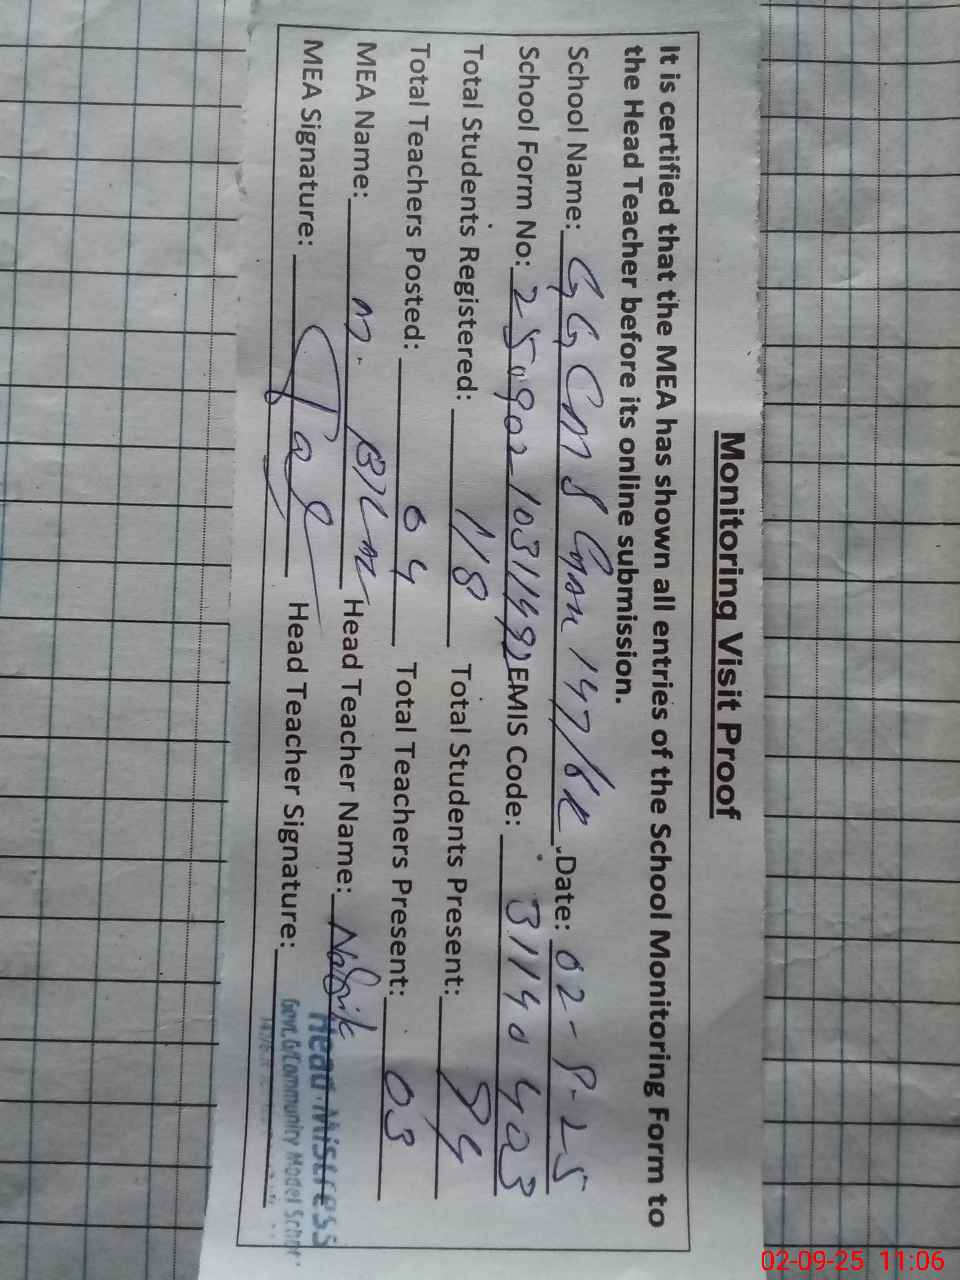 Monitoring Visit Proof
It is certified that the MEA has shown all entries of the School Monitoring Form to
the Head Teacher before its online submission.
School Name: GGCMS 147/6R Date: 02-9-25
School Form No: EMIS Code: 31140403
Total Students Registered: 118 Total Students Present: 94
Total Teachers Posted: 04 Total Teachers Present: 03
MEA Name: M. Head Teacher Name:
MEA Signature: Head Teacher Signature:
Head Mistress
Govt. G/Community Model School
02-09-25 11:06